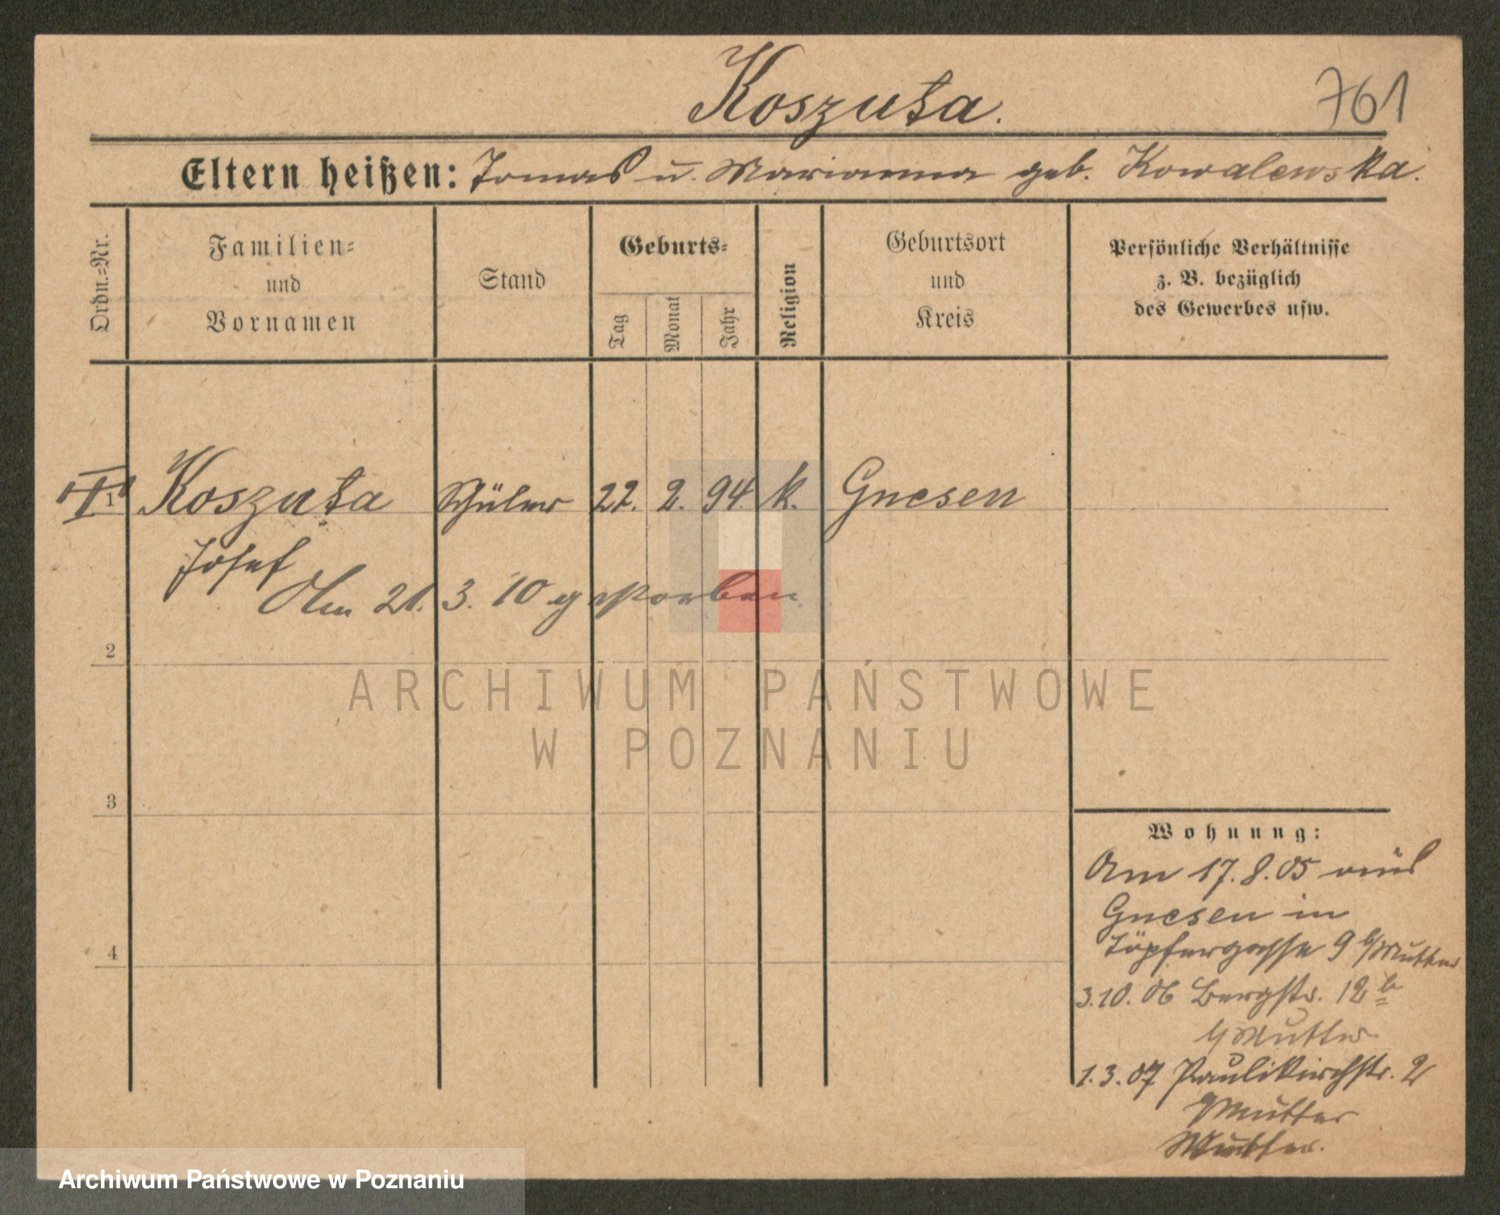 Koszuta.
761
Eltern heißen: Tomas u. Marianna geb. Kowalewska.
Ordn.=Nr.
Familien=
und
Vornamen
Stand
Geburts=
Tag
Monat
Jahr
Religion
Geburtsort
und
Kreis
Persönliche Verhältnisse
z. B. bezüglich
des Gewerbes usw.
1 Koszuta Schüler 22. 2. 94 k. Gnesen
Josef
Am 21. 3. 10 gestorben
2
ARCHIWUM PAŃSTWOWE
W POZNANIU
3
4
Wohnung:
Am 17. 8. 05 aus
Gnesen in
Töpfergasse 9 b/Mutter
3.10. 06 Bergstr. 12 b
b/Mutter
1. 3. 07 Paulikirchstr. 2
b/Mutter
Mutter.
Archiwum Państwowe w Poznaniu